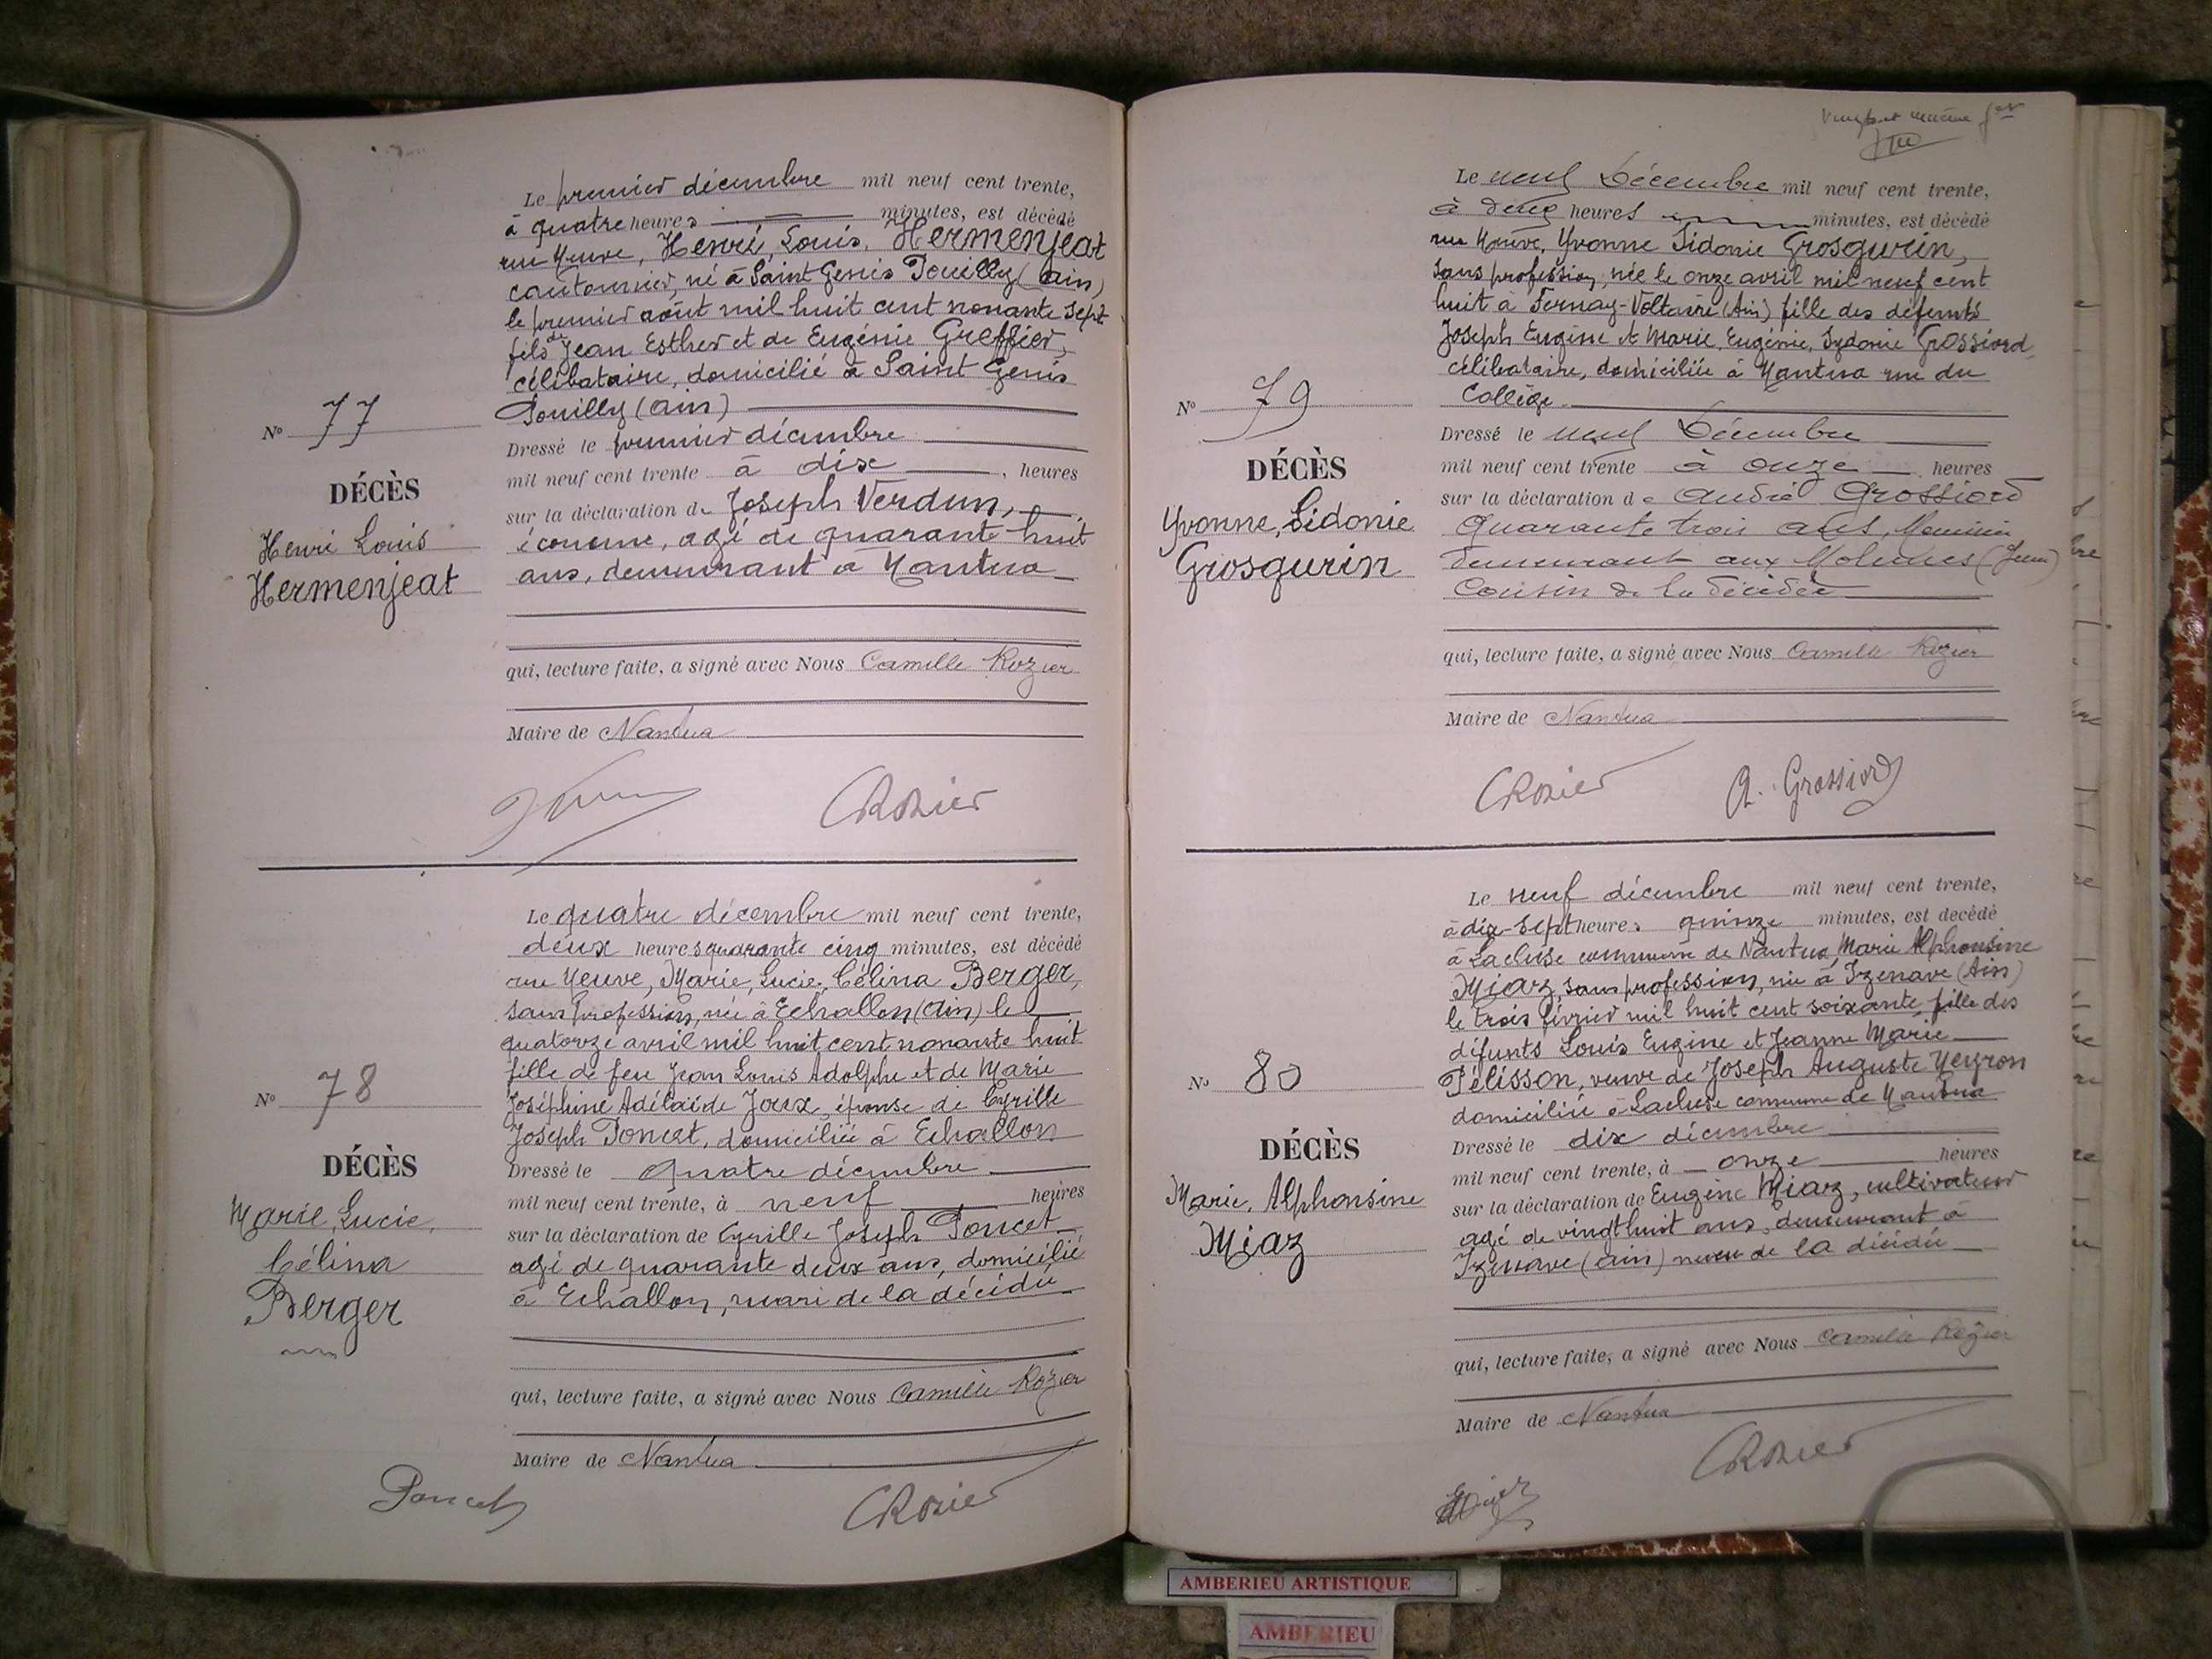 Le premier décembre mil neuf cent trente,
à quatre heures minutes, est décédé
rue Neuve, Henri, Louis, Hermenjeat
cantonnier, né à Saint Genis Pouilly (ain)
le premier août mil huit cent nonante sept
fils de Jean Esther et de Eugénie Greffier,
célibataire, domicilié à Saint Genis
Pouilly (ain)
N° 77
DÉCÈS
Henri Louis
Hermenjeat
Dressé le premier décembre
mil neuf cent trente à dix heures
sur la déclaration de Joseph Verdun,
économe, agé de quarante huit
ans, demeurant à Nantua
qui, lecture faite, a signé avec Nous Camille Rozier
Maire de Nantua
CRozier
Le quatre décembre mil neuf cent trente,
deux heures quarante cinq minutes, est décédé
rue Neuve, Marie, Lucie, Célina Berger,
sans profession, née à Echallon (ain) le
quatorze avril mil huit cent nonante huit
fille de feu Jean Louis Adolphe et de Marie
Joséphine Adélaïde Joux, épouse de Cyrille
Joseph Poncet, domiciliée à Echallon
N° 78
DÉCÈS
Marie, Lucie,
Célina
Berger
Dressé le quatre décembre
mil neuf cent trente, à neuf heures
sur la déclaration de Cyrille Joseph Poncet
agé de quarante deux ans, domicilié
à Echallon, mari de la décédée
qui, lecture faite, a signé avec Nous Camille Rozier
Maire de Nantua
Poncet
CRozier
Le neuf Décembre mil neuf cent trente,
à deux heures minutes, est décédé
rue Neuve, Yvonne Sidonie Grosgurin,
sans profession, née le onze avril mil neuf cent
huit à Fernay-Voltaire (Ain) fille des défunts
Joseph Eugène et Marie, Eugénie, Sydonie Grossiord
célibataire, domiciliée à Nantua rue du
Collège
N° 79
DÉCÈS
Yvonne, Sidonie
Grosgurin
Dressé le neuf Décembre
mil neuf cent trente à onze heures
sur la déclaration de André Grossiord
quarante trois ans,
demeurant aux Molunes (Jura)
Cousin de la décédée
qui, lecture faite, a signé avec Nous Camille Rozier
Maire de Nantua
CRozier
A. Grossiord
Le neuf décembre mil neuf cent trente,
à dix-sept heures quinze minutes, est decédé
à Lacluse commune de Nantua, Marie Alphonsine
Miaz, sans profession, née à Izenave (Ain)
le trois février mil huit cent soixante, fille des
défunts Louis Eugène et Jeanne Marie
Pélisson, veuve de Joseph Auguste Neyron
domiciliée à Lacluse commune de Nantua
N° 80
DÉCÈS
Marie, Alphonsine
Miaz
Dressé le dix décembre
mil neuf cent trente, à onze heures
sur la déclaration de Eugène Miaz, cultivateur
agé de vingt huit ans, demeurant à
Izenave (ain) neveu de la décédée
qui, lecture faite, a signé avec Nous Camille Rozier
Maire de Nantua
CRozier
AMBERIEU ARTISTIQUE
AMBERIEU